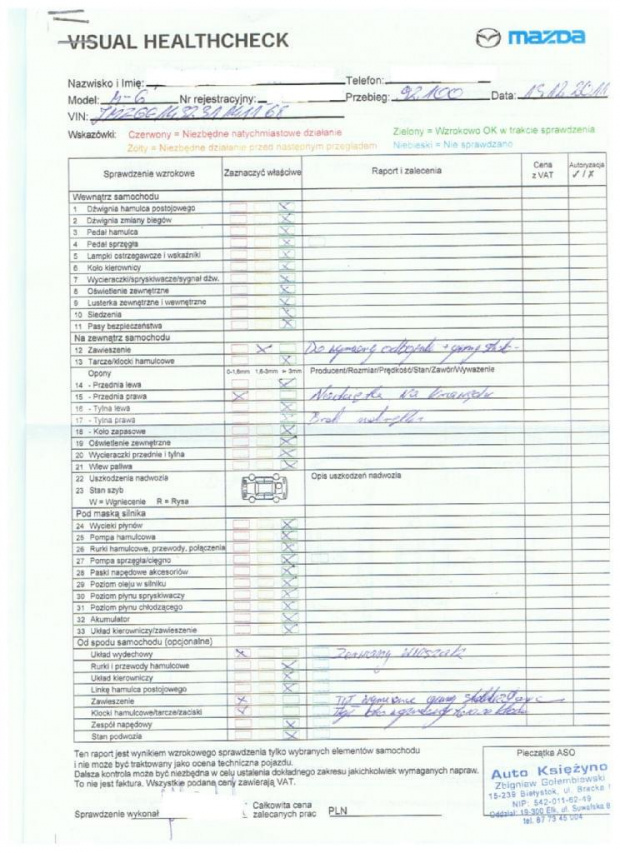 VISUAL HEALTHCHECK
mazda
Nazwisko i Imię:
Telefon:
Model: M-6 Nr rejestracyjny: Przebieg: 92.100 Data:
VIN:
Wskazówki: Czerwony = Niezbędne natychmiastowe działanie Zielony = Wzrokowo OK w trakcie sprawdzenia
Żółty = Niezbędne działanie przed następnym przeglądem Niebieski = Nie sprawdzano
Sprawdzenie wzrokowe Zaznaczyć właściwe Raport i zalecenia Cena z VAT Autoryzacja ✓ / ✗
Wewnątrz samochodu
1 Dźwignia hamulca postojowego
2 Dźwignia zmiany biegów
3 Pedał hamulca
4 Pedał sprzęgła
5 Lampki ostrzegawcze i wskaźniki
6 Koło kierownicy
7 Wycieraczki/spryskiwacze/sygnał dźw.
8 Oświetlenie zewnętrzne
9 Lusterka zewnętrzne i wewnętrzne
10 Siedzenia
11 Pasy bezpieczeństwa
Na zewnątrz samochodu
12 Zawieszenie Do wymiany odboje + gumy stab.
13 Tarcze/klocki hamulcowe
Opony 0-1,6mm 1,6-3mm > 3mm Producent/Rozmiar/Prędkość/Stan/Zawór/Wyważenie
14 - Przednia lewa
15 - Przednia prawa na krawędzi
16 - Tylna lewa
17 - Tylna prawa Brak
18 - Koło zapasowe
19 Oświetlenie zewnętrzne
20 Wycieraczki przednie i tylna
21 Wlew paliwa
22 Uszkodzenia nadwozia Opis uszkodzeń nadwozia
23 Stan szyb
W = Wgniecenie R = Rysa
Pod maską silnika
24 Wycieki płynów
25 Pompa hamulcowa
26 Rurki hamulcowe, przewody, połączenia
27 Pompa sprzęgła/cięgno
28 Paski napędowe akcesoriów
29 Poziom oleju w silniku
30 Poziom płynu spryskiwaczy
31 Poziom płynu chłodzącego
32 Akumulator
33 Układ kierowniczy/zawieszenie
Od spodu samochodu (opcjonalne)
Układ wydechowy Zerwany wieszak
Rurki i przewody hamulcowe
Układ kierowniczy
Linkę hamulca postojowego
Zawieszenie
Klocki hamulcowe/tarcze/zaciski
Zespół napędowy
Stan podwozia
Ten raport jest wynikiem wzrokowego sprawdzenia tylko wybranych elementów samochodu
i nie może być traktowany jako ocena techniczna pojazdu.
Dalsza kontrola może być niezbędna w celu ustalenia dokładnego zakresu jakichkolwiek wymaganych napraw.
To nie jest faktura. Wszystkie podane ceny zawierają VAT.
Pieczątka ASO
Auto Księżyno
Zbigniew Gołembiewski
15-239 Białystok, ul. Bracka
NIP: 542-011-62-49
Oddział: 19-300 Ełk, ul. Suwalska
tel. 87 73 45 004
Sprawdzenie wykonał
Całkowita cena zalecanych prac PLN